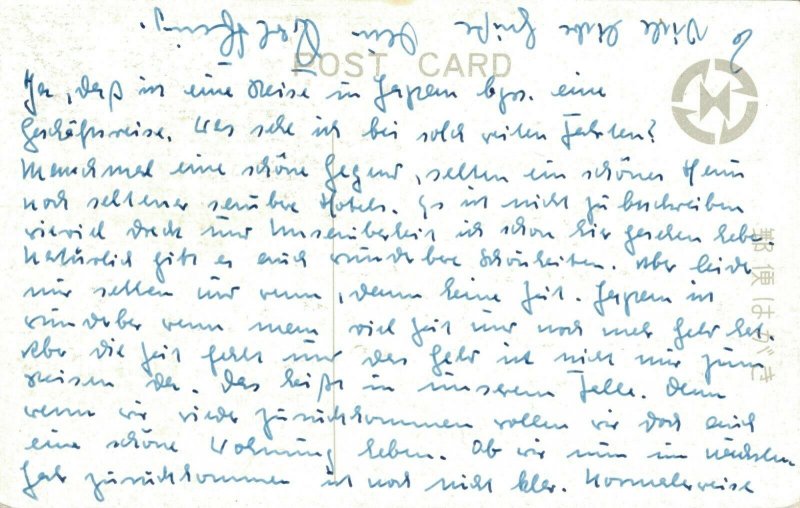 Viele liebe Grüße Dein
POST CARD
Ja, daß ist eine Reise in Japan bzw. eine
Geschäftsreise. Was sehe ich bei solch weiten Fahrten?
Manchmal eine schöne Gegend, selten ein schönes Heim
noch seltener saubere Hotels. Es ist nicht zu beschreiben
wieviel Dreck und Unsauberkeit ich schon hier gesehen habe.
Natürlich gibt es auch wunderbare Schönheiten. Aber leider
nur selten und wenn, dann keine Zeit. Japan ist
wunderbar wenn man viel Zeit und noch mehr Geld hat.
Aber die Zeit fehlt und das Geld ist nicht nur zum
Reisen da. Das heißt in unserem Falle. Denn
wenn wir wieder zurückkommen wollen wir doch auch
eine schöne Wohnung haben. Ob wir nun im nächsten
Jahr zurückkommen ist noch nicht klar. Normalerweise
郵便はがき